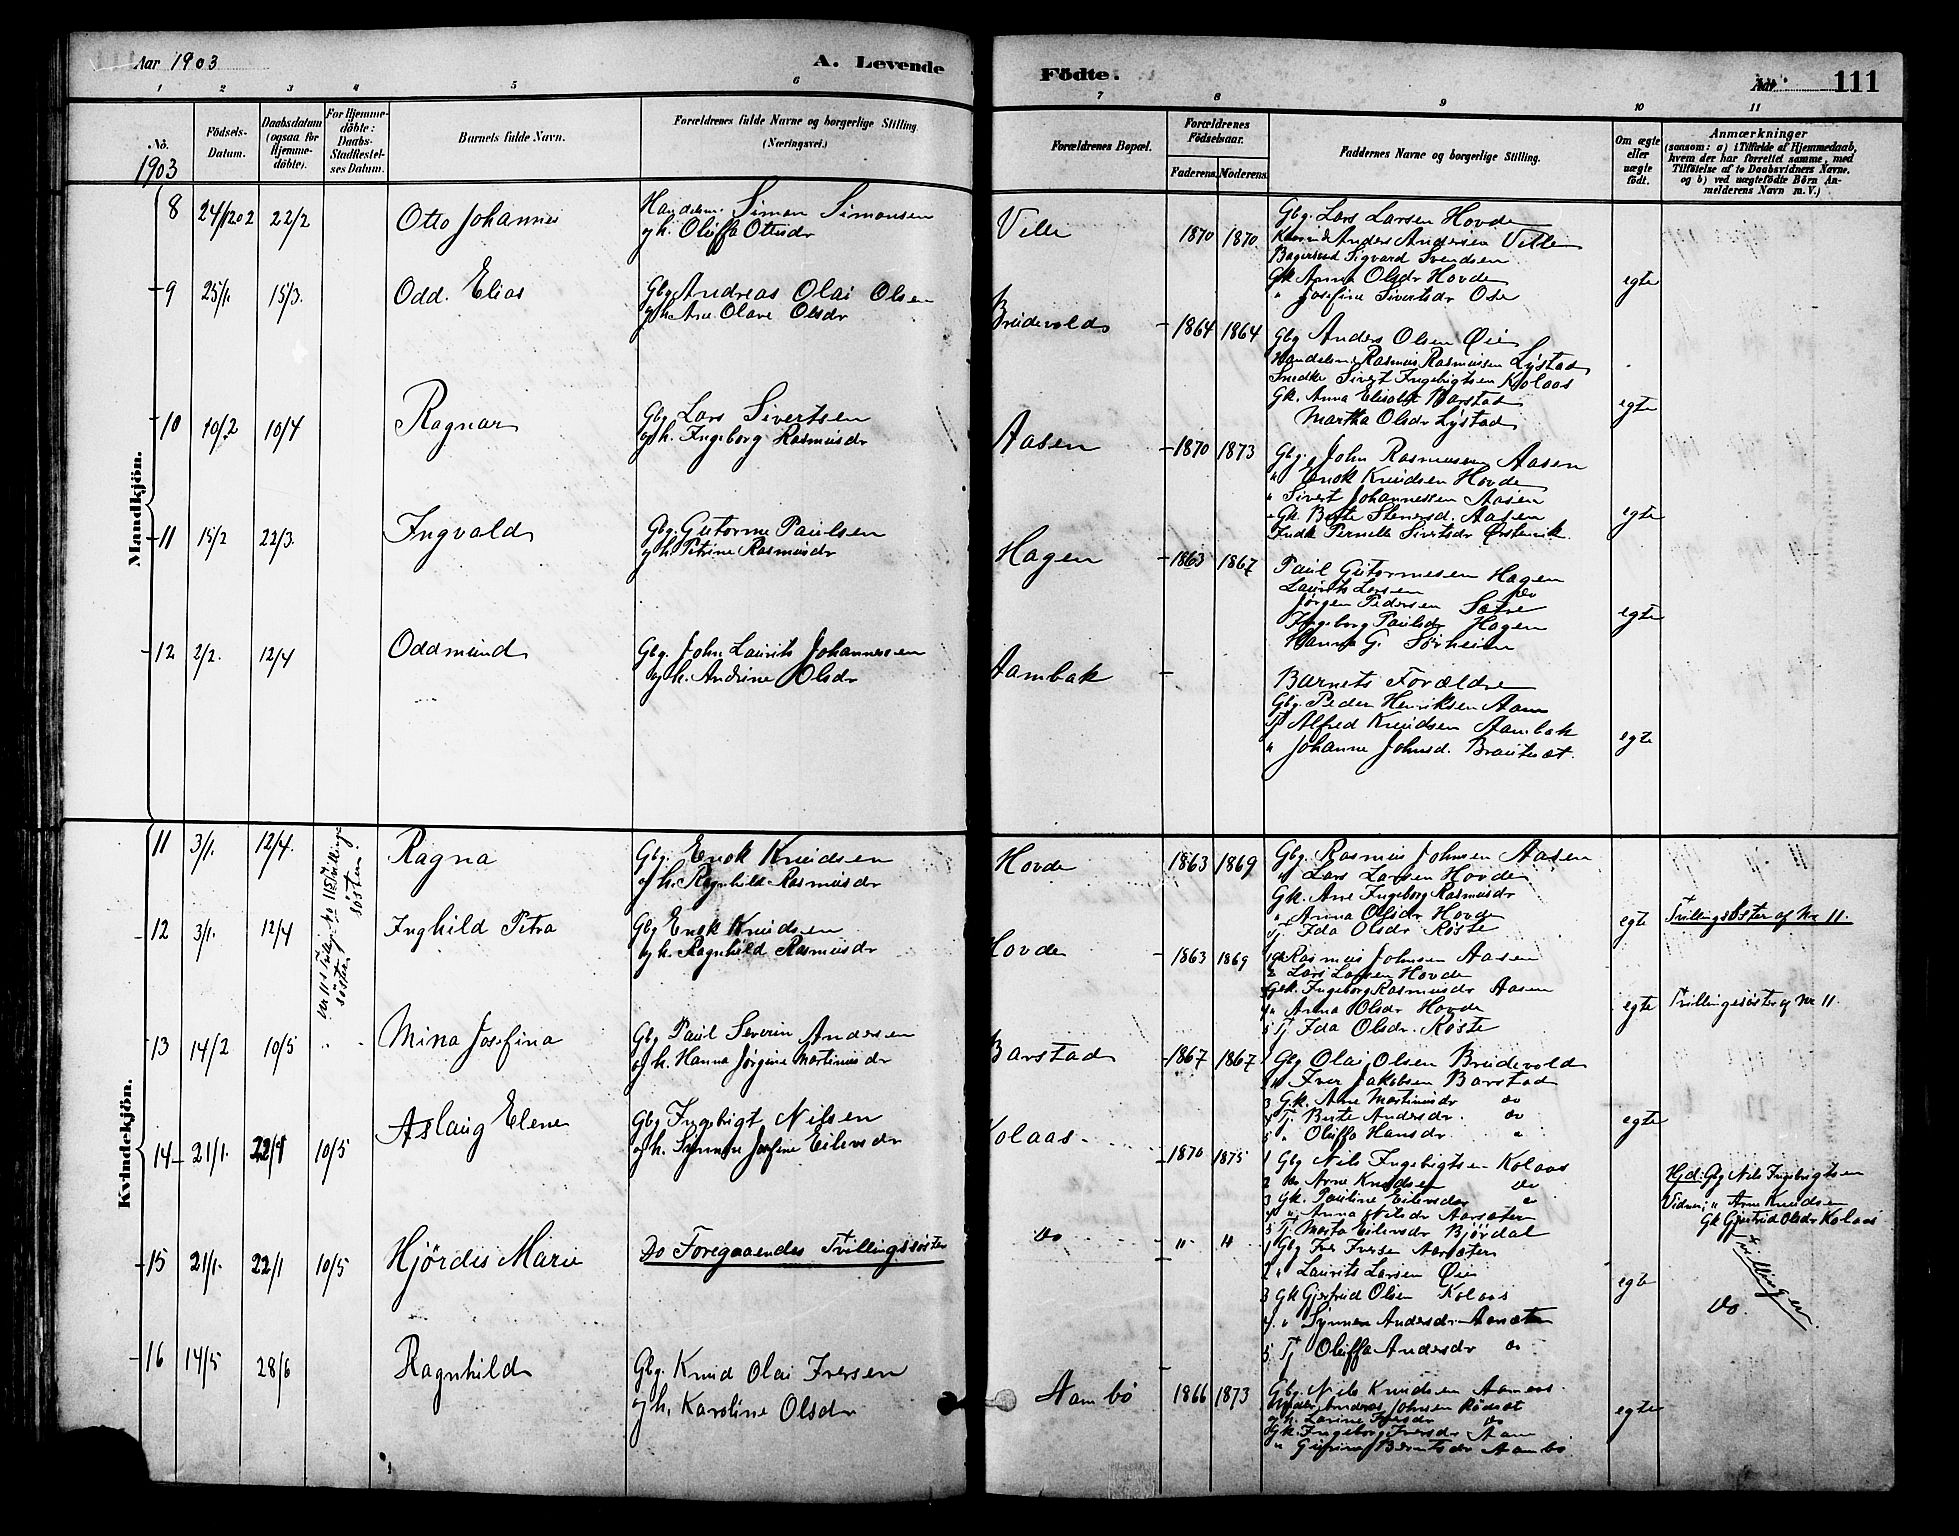 Aar 1903
A. Levende
Födte.
Aar
111
1 2 3 4 5 6 7 8 9 10 11
No.
1903
Födsels-
Datum.
Daabsdatum
(ogsaa for
Hjemme-
döbte).
For Hjemme-
döbte:
Daabs-
Stadfestel-
ses Datum.
Barnets fulde Navn.
Forældrenes fulde Navne og borgerlige Stilling.
(Næringsvei.)
Forældrenes Bopæl.
Forældrenes
Födselsaar.
Faderens. Moderens.
Faddernes Navne og borgerlige Stilling.
Om ægte
eller
uægte
födt.
Anmærkninger
(saasom: a) i Tilfælde af Hjemmedaab,
hvem der har forrettet samme, med
Tilföielse af to Daabsvidners Navne,
og b) ved uægtefödte Börn An-
melderens Navn m. V.)
Mandkjön.
8 24/12 02 22/2 Otto Johannes
Simon Simonsen
og h. Oluffa Ottesdr
Velle 1870 1870
Gbg. Lars Larsen Hovde
Anders Andersen Velle
Sigvard Svendsen
Gk. Anna Olsdr Hovde
" Josefine Sivertsdr Ose
egte
9 25/1. 15/3. Odd. Elias
Gbg Andreas Olai Olsen
og h. Ane Olave Olsdr
Breidevolds 1864 1864
Gbg Anders Olsen Øie
Handelsm. Rasmus Rasmussen Lystad
Snedker Sivert Ingebrigtsen Kolaas
Gk. Anna Elisabet Barstad
Martha Olsdr Lystad
egte
10 10/2 10/4 Ragnar
Gbg Lars Sivertsen
og h. Ingeborg Rasmusdr
Aasen 1870 1873
Gbg. John Rasmussen Aasen
" Enok Knudsen Hovde
" Sivert Johannessen Aasen
" Gk. Berte Stenersd. Aasen
Pernelle Sivertsdr Ørstenvik
egte
11 15/2 22/3. Ingvald
Gbg. Gutorme Paulsen
og h. Petrine Rasmusdr
Hagen 1863 1867
Paul Gutormesen Hagen
Laurits Larsen do
Jørgen Pedersen Sætre
Ingeborg Paulsdr Hagen
Hanna G. Sørheim
egte
12 2/2. 12/4 Oddmund
Gbg. John Laurits Johannessen
og h. Andrine Olsdr
Aambak
Barnets Forældre
Gbg. Peder Henriksen Aam
Tj Alfred Knudsen Aambak
" Johanne Johnsd. Brautaset.
egte
Kvindekjön.
11 3/1. 12/4. Ragna
Gbg. Enok Knudsen
og h. Ragnhild Rasmusdr
Hovde 1863 1869
Gbg. Rasmus Johnsen Aasen
" Lars Larsen Hovde
Gk. Ane Ingeborg Rasmusdr
" Anna Olsdr Hovde
Tj. Ida Olsdr Röste
egte
Tvillingsöster af Nr 11.
12 3/1. 12/4 Inghild Petra
Gbg Enok Knudsen
og h. Ragnhild Rasmusdr
Hovde 1863 1869
1 Gbg Rasmus Johnsen Aasen
2 Lars Larsen Hovde
3 Gk. Ingeborg Rasmusdr Aasen
4 " Anna Olsdr Hovde
5 Tj Ida Olsdr. Röste
egte
Tvillingsöster af Nr 11.
13 14/2 10/5 " Mina Josefina
Gbg Paul Severin Andersen
og h. Hanna Jørgine Martinusdr
Barstad 1867 1867
1 Gbg Olai Olsen Breidevold
2 " Iver Jakobsen Barstad
3 Gk. Ane Martinusdr do
4 Tj. Berte Andersdr. do
5 " Oluffa Hansdr. "
egte
14 21/1. 22/1 10/5 Aslaug Elene
Gbg Ingebrigt Nilsen
og h. Synnøve Josefine Eilevsdr
Kolaas 1870 1875
1 Gbg Nils Ingebrigtsen Kolaas
2 do Arne Knudsen do
3 Gk. Pauline Eilevsdr "
4 " Anna Nilsdr Aarsæten
5 Tj. Marta Eilevsdr Bjørdal
Hjd: Gbg Nils Ingebrigtsen
Vidner: " Arne Knudsen
Gk Gjertrud Olsdr Kolaas
Tvillinger
15 21/1. 22/1 10/5 Hjördis Marie
Do Foregaaendes Tvillingsöster
do " "
1 Gbg Iver Iversen Aarsæten
2 " Laurits Larsen Øie
3 Gk Gjertrud Olsen Kolaas
4. " Synnøve Andersdr. Aarsæten
5 Tj Oluffa Andersdr do
egte
Do.
16 14/5 28/6 Ragnhild
Gbg. Knud Olai Iversen
og h. Karoline Olsdr
Aambö 1866 1873
Gbg. Nils Knudsen Aamaas
Andreas Johnsen Rödsæt
og h. Larine do
Gk. Ingeborg Iversdr Aam
" Berntsdr Aambö
egte